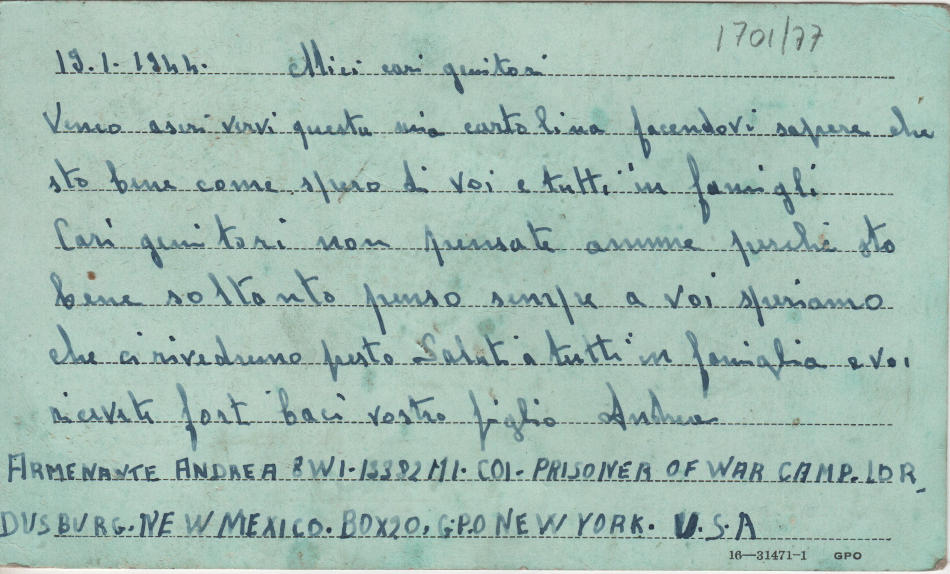 1701/77
19.1.1944. Miei cari genitori
Vengo a scrivervi questa mia cartolina facendovi sapere che
sto bene come spero di voi e tutti in famigli
Cari genitori non pensate ammme perché sto
bene soltanto penso sempre a voi speriamo
che ci rivedremo presto Saluti a tutti in famiglia e voi
ricevete forti baci vostro figlio Andrea
ARMENANTE ANDREA 8WI-13382 MI. COI- PRISONER OF WAR CAMP. LOR_
DUSBURG. NEW MEXICO. BOX 20, G.P.O NEW YORK. U.S.A
16—31471-1 GPO